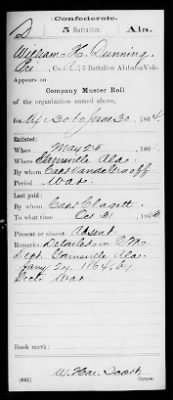 Confederate.
D 5 Battalion. Ala.
William H. Dunning
Pvt, Co. A, 5 Battalion Alabama Vols.
Appears on
Company Muster Roll
of the organization named above,
for Apl 30 to June 30, 1864.
Enlisted:
When May 25, 1861.
Where Gainsville Ala.
By whom Capt Vandegraaff
Period War.
Last paid:
By whom Capt Clagett
To what time Oct 31, 1863.
Present or absent: Absent
Remarks: Detailed in Q.M.
Dept. Gainsville Ala.
Jany 29, 1864, by
Secty War.
Book mark:
(642) Copyist.